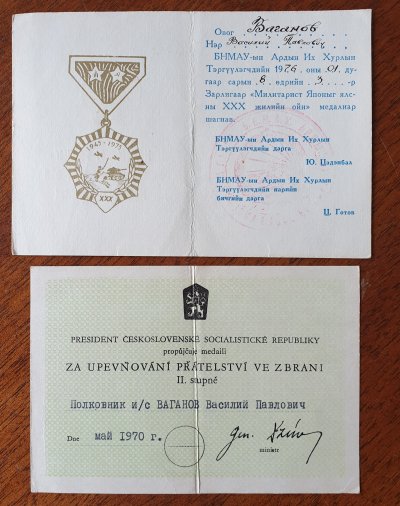 1945-1975
XXX
Овог Ваганов
Нэр Василий Павлович
БНМАУ-ын Ардын Их Хурлын
Тэргүүлэгчдийн 1976 оны 01 ду-
гаар сарын 6 өдрийн 3 -р
Зарлигаар «Милитарист Японыг ялс-
ны XXX жилийн ойн» медалиар
шагнав.
БНМАУ-ын Ардын Их Хурлын
Тэргүүлэгчдийн дарга
Ю. Цэдэнбал
БНМАУ-ын Ардын Их Хурлын
Тэргүүлэгчдийн нарийн
бичгийн дарга
Ц. Готов
PRESIDENT ČESKOSLOVENSKÉ SOCIALISTICKÉ REPUBLIKY
propůjčuje medaili
ZA UPEVŇOVÁNÍ PŘÁTELSTVÍ VE ZBRANI
II. stupně
Полковник и/с ВАГАНОВ Василий Павлович
Dne май 1970 г.
Gen.
ministr